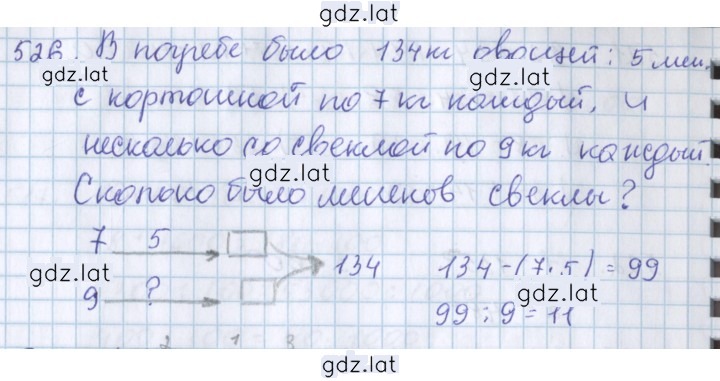 gdz.lat
526. В погребе было 134 кг овощей: 5 меш.
gdz.lat
gdz.lat
с картошкой по 7 кг каждый, и
несколько со свеклой по 9 кг каждый.
gdz.lat
Сколько было мешков свеклы?
7 5 134 134 - (7 · 5) = 99
gdz.lat
9 ? gdz.lat
99 : 9 = 11
gdz.lat